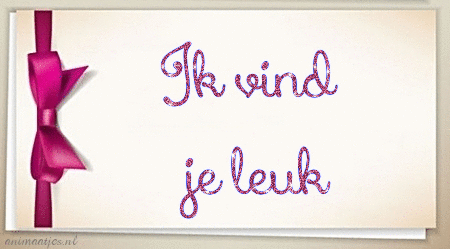 Ik vind
je leuk
animaatjes.nl